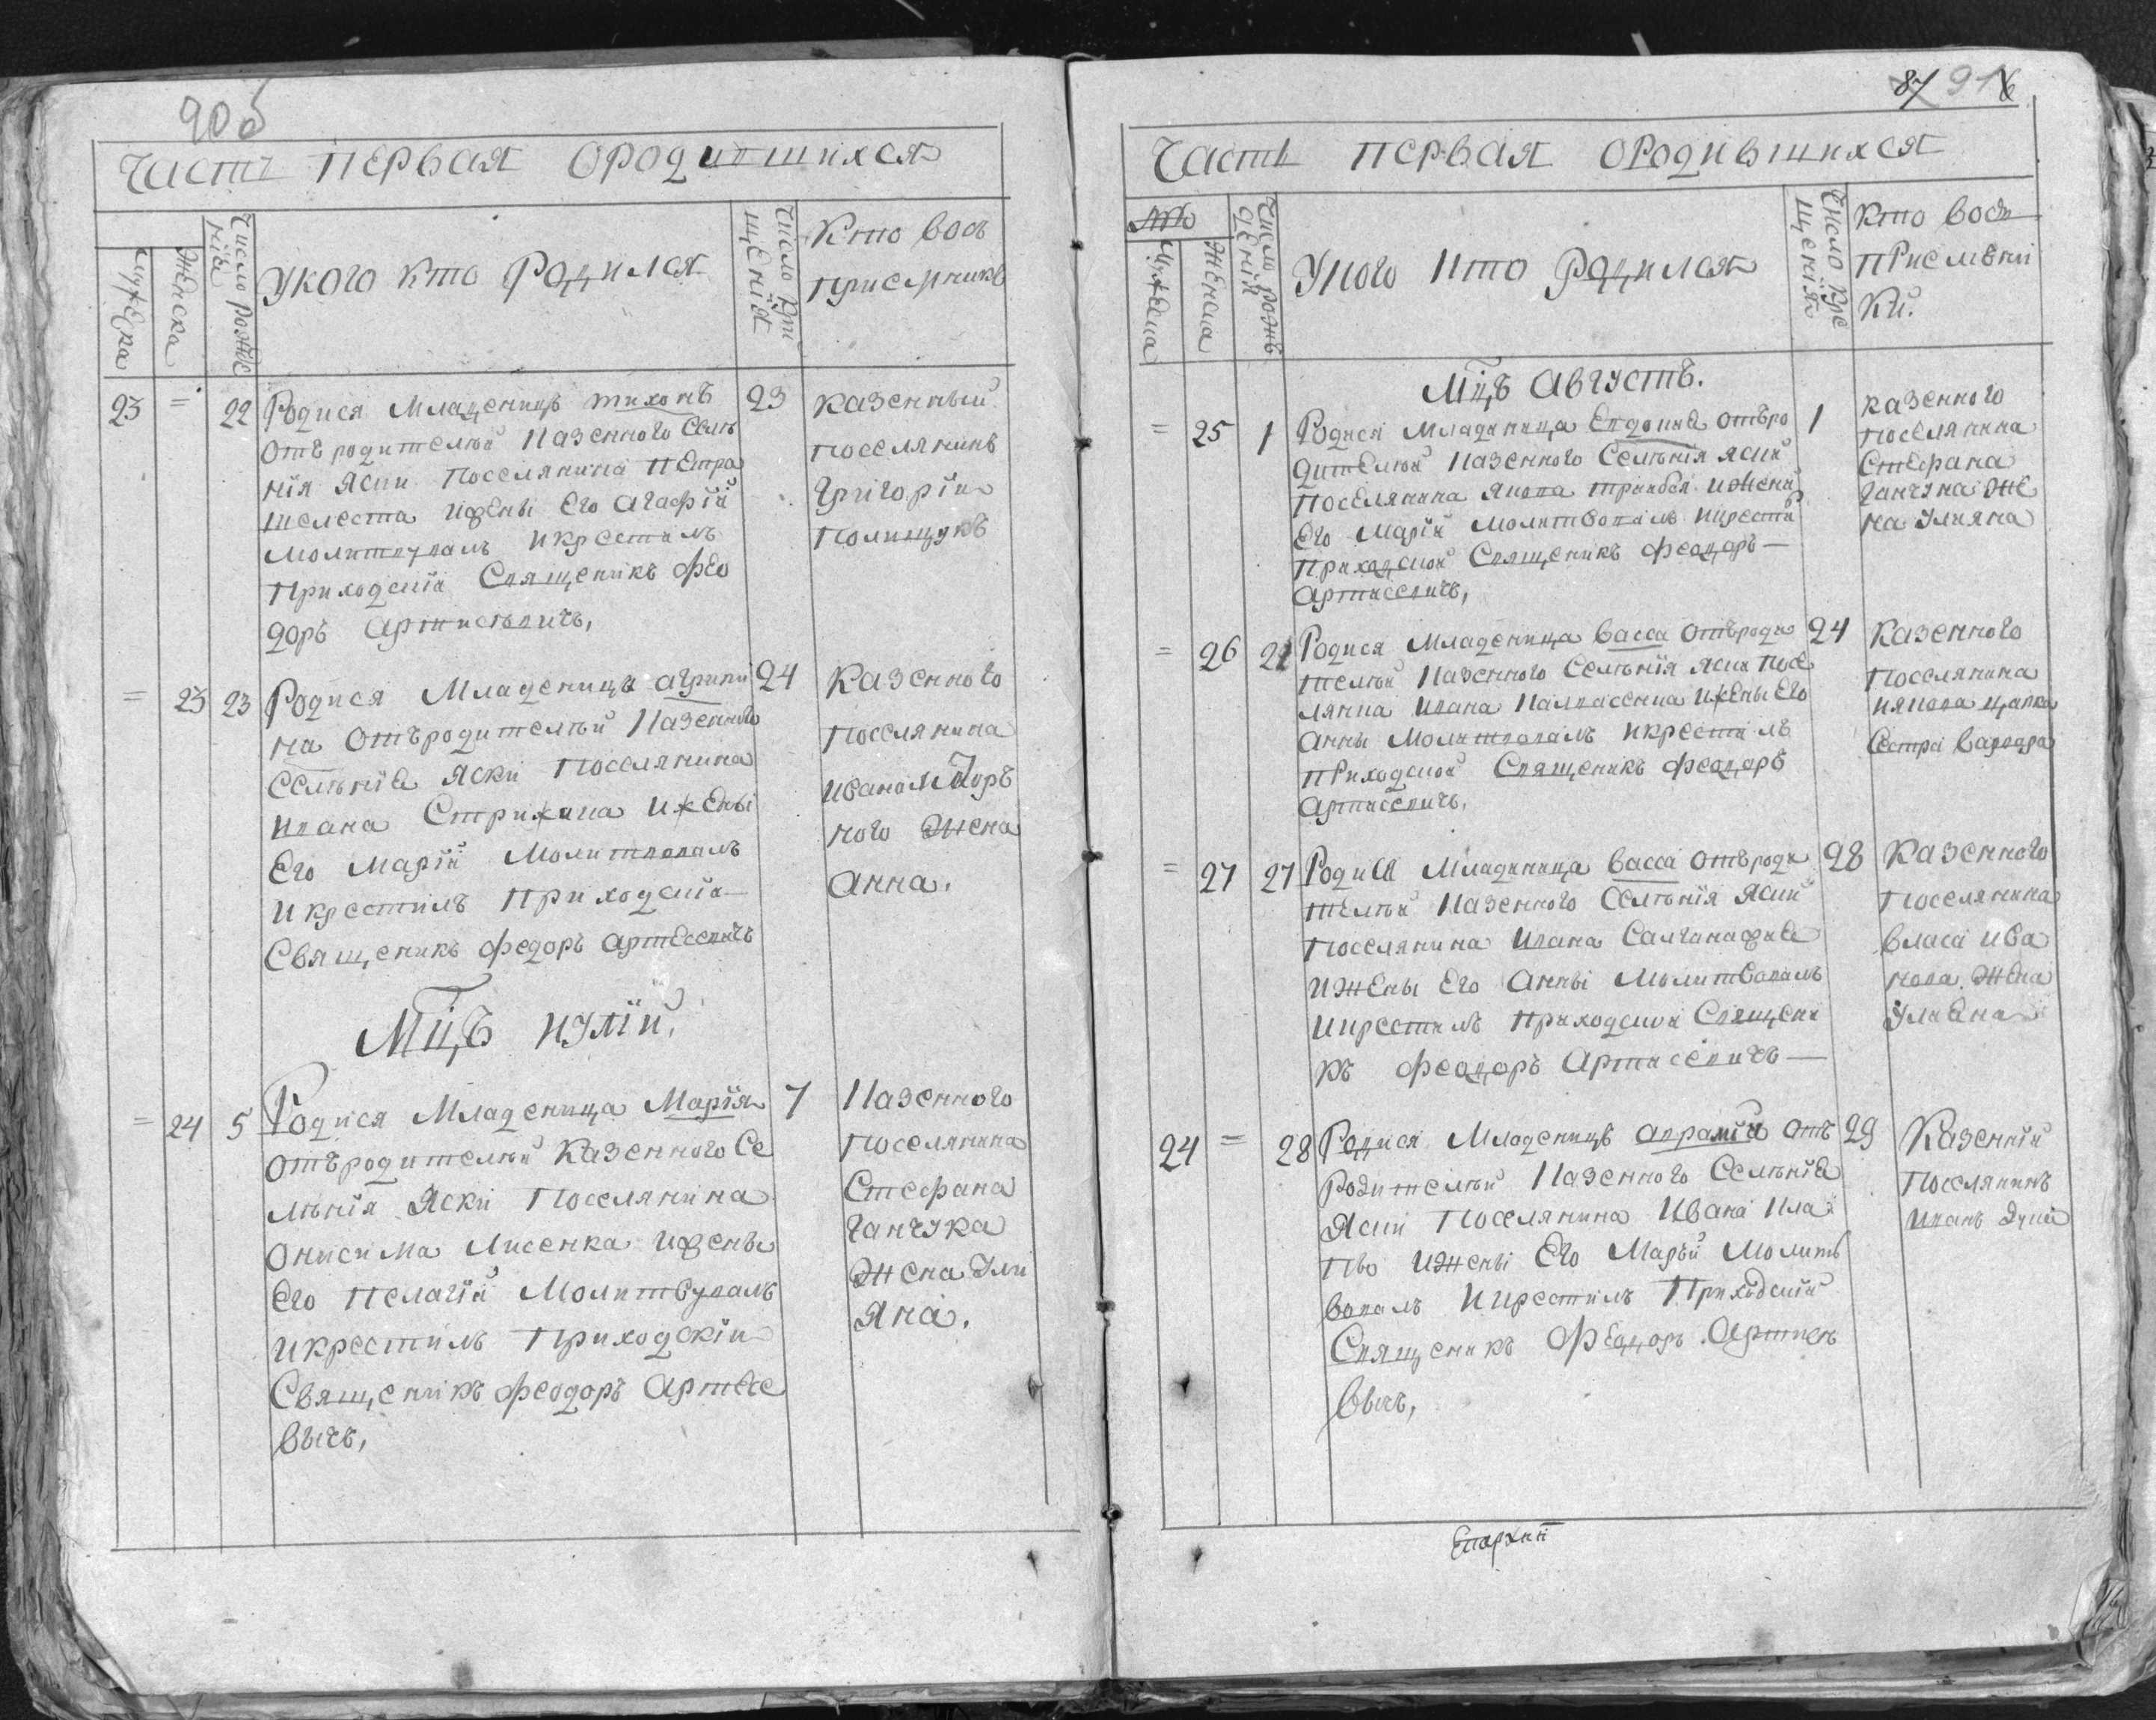 90об
Часть первая ородившихся
Мужеска
Женска
Число рожде
нія
Укого кто Родился
Число кре
щенія
Кто вос
приемникъ
23 = 22 Родися Младенецъ тихонъ 23
отъ родителей казенного Селе
нія Яски Поселянина Петра
шелеста ижены Его агафіи
Молитвувалъ икрестилъ
Приходскій Священикъ фео
доръ Артисевичъ,
казенный
поселянинъ
Григорій
Полищукъ
= 23 23 Родися Младеница агрипи 24
на отъродителей казенного
Селенія Яски Поселянина
ивана Стрижака ижены
Его Маріи Молитвовалъ
икрестилъ приходскій
Священикъ федоръ артесевичъ
казенного
поселянина
ивана
ного жена
анна.
Мцъ иулій.
= 24 5 Родися Младеница Марія 7
отъродителей казенного Се
ленія Яски Поселянина
онисима Лисенка ижены
Его Пелагіи Молитвувалъ
икрестилъ приходскій
Священикъ феодоръ Артесе
вичъ,
казенного
поселянина
Стефана
ганчука
жена Ули
яна.
87 91
Часть первая ородившихся
Мужеска
Женска
Число рож
денія
Укого кто родился
Число кре
щенія
Кто вос
приемни
ки.
Мцъ августъ.
= 25 1 Родися младеница Евдокия отъро 1
дителей казенного Селенія яски
поселянина якова ижены
Его Маріи молитвовалъ икрести
приходской Священикъ феодоръ
артисевичъ,
казенного
поселянина
Стефана
ганчука же
на Улияна
= 26 21 Родися Младеница васса отъроди 24
телей казенного Селенія яски посе
ляниа ивана ижены Его
анны Молитвовалъ икрестилъ
приходской Священикъ феодоръ
артисевичъ.
казенного
поселянина
Сестра варвара
= 27 27 Родися младеница васса отъроди 28
телей казенного Селенія яски
поселянина ивана
ижены Его анны Молитвовалъ
икрестилъ приходской Священи
къ феодоръ артисевичъ
казенного
поселянина
власа ива
нова жена
Улиена
24 = 28 Родися Младенецъ аврамій отъ 29
родителей казенного Селенія
Яски Поселянина Ивана Кла
пко ижены Его Маріи Молитв
вовалъ икрестилъ Приходскій
Священикъ феодоръ Артисе
вичъ,
Казенній
поселянинъ
иванъ
Епархии